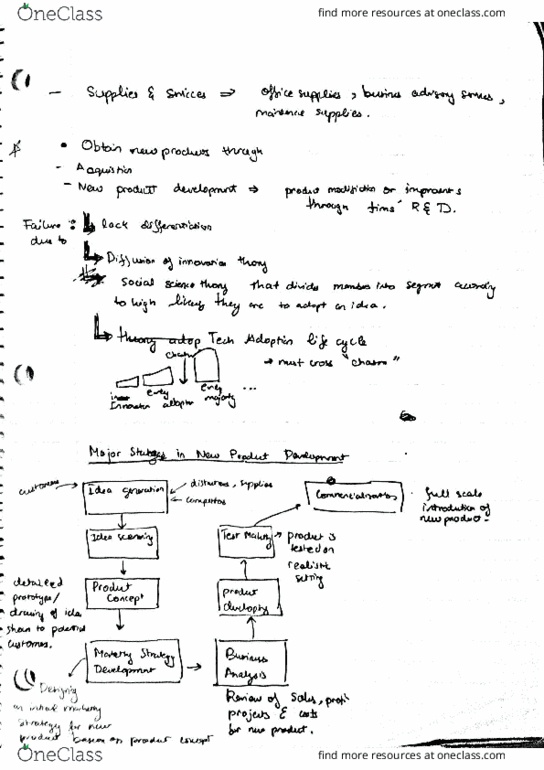 OneClass
find more resources at oneclass.com
- Supplies & Services ⇒ office supplies, business advisory services,
maintenance supplies.
• Obtain new products through
- Aquistion
- New product development ⇒ product modification or improvements
through time R & D.
Failure : lack differentiation
due to
Diffusion of innovation theory
Social science theory that divides members into segments accordly
to high likely they are to adopt an idea.
Tech Adoption life cycle
chasm → must cross "chasm"
Innovator early adoptor early majority ...
Major Strategies in New Product Development
customers Idea generation distributors, supplies
competitors
Commercialization full scale
introduction of
new product.
Idea screening Test Marketing → product is
tested on
realistic
setting
detailed
prototype/
drawing of idea
shown to potential
customers.
Product
Concept
product
developing
Marketing Strategy
Development
Business
Analysis
Designing
an initial marketing
strategy for new
product based on product concept
Review of Sales, profit
projects & costs
for new product.
OneClass
find more resources at oneclass.com